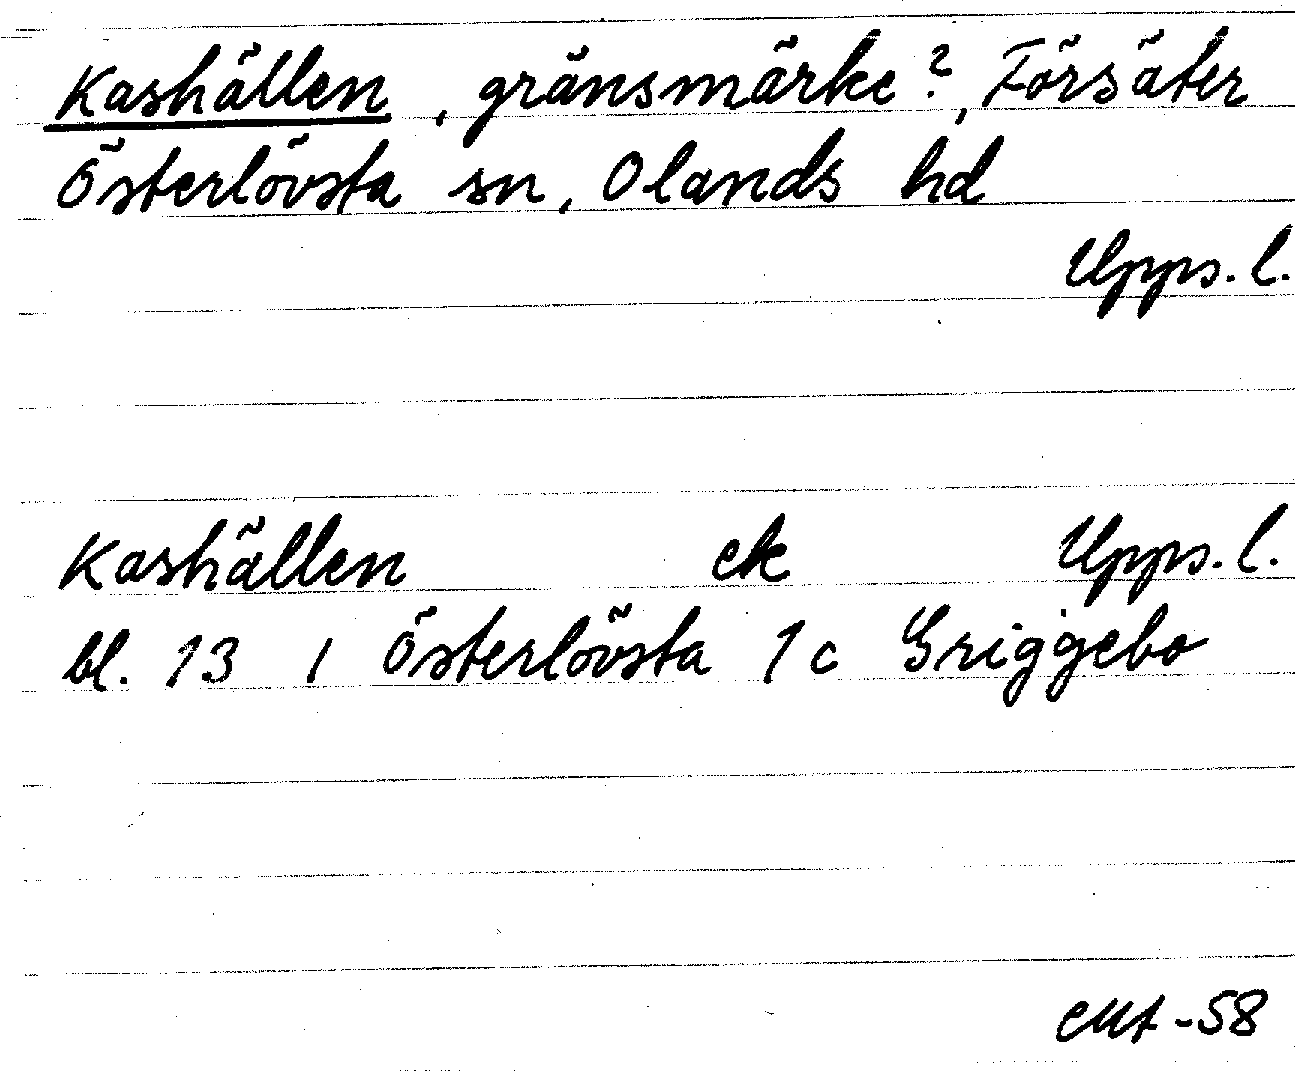 Kashällen, gränsmärke?, Försäter
Österlövsta sn, Olands hd
Upps. l.
Kashällen ek Upps. l.
bl. 13 I Österlövsta 1c Griggebo
-58